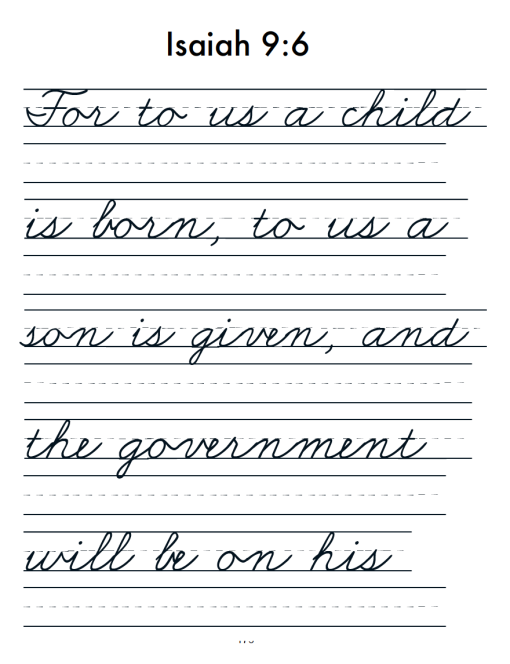 Isaiah 9:6
For to us a child
is born, to us a
son is given, and
the government
will be on his